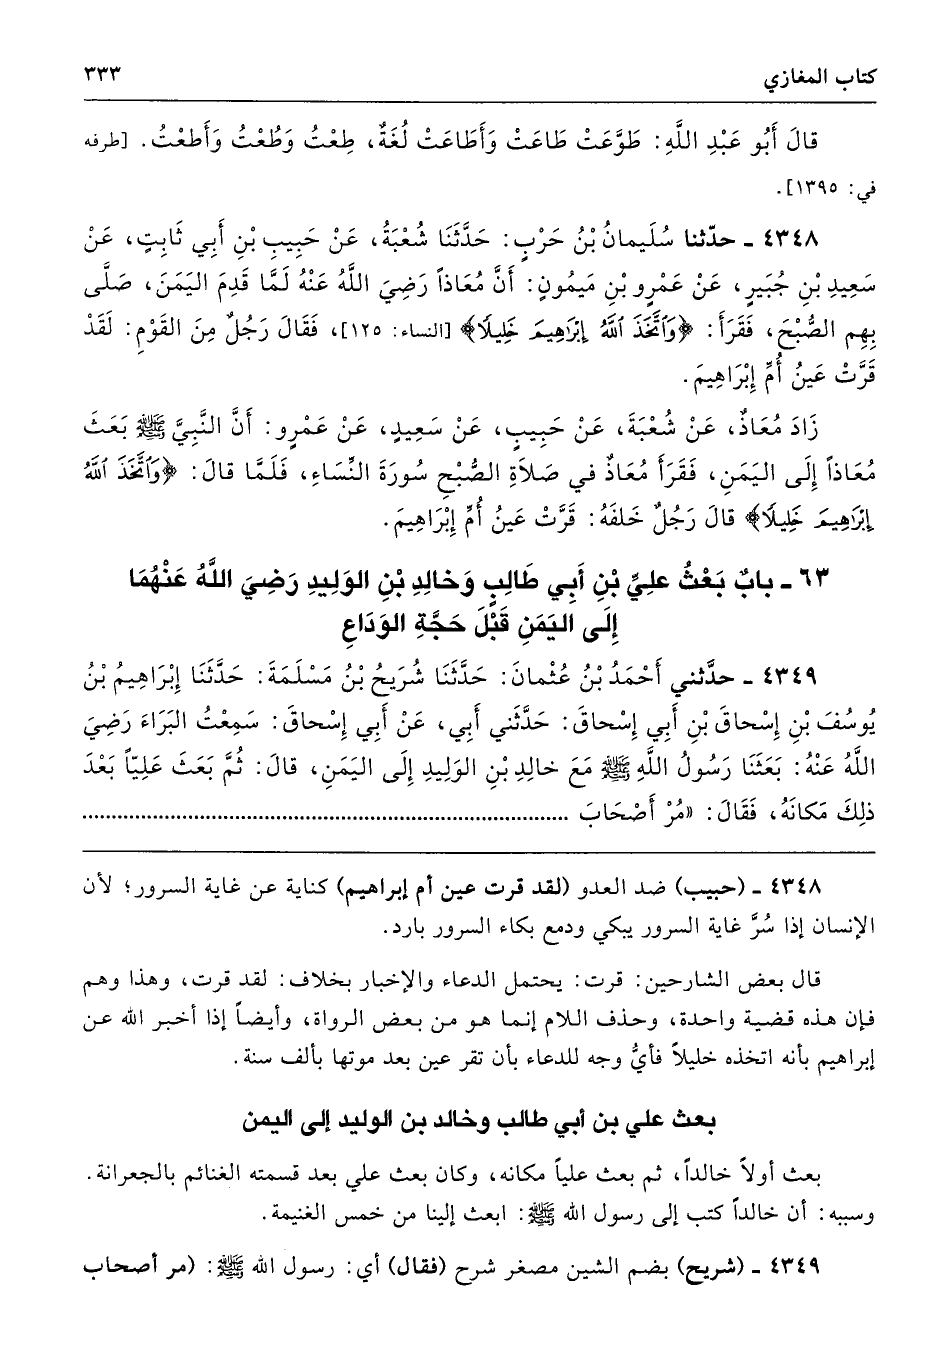 كتاب المغازي ٣٣٣
قالَ أَبُو عَبْدِ اللَّهِ: طَوَّعَتْ طَاعَتْ وَأَطَاعَتْ لُغَةٌ، طِعْتُ وَطُعْتُ وَأَطَعْتُ. [طرفه
في: ١٣٩٥].
٤٣٤٨ ـ حدّثنا سُلَيمانُ بْنُ حَرْبٍ: حَدَّثَنَا شُعْبَةُ، عَنْ حَبِيبِ بْنِ أَبِي ثَابِتٍ، عَنْ
سَعِيدِ بْنِ جُبَيرٍ، عَنْ عَمْرِو بْنِ مَيمُونٍ: أَنَّ مُعَاذاً رَضِيَ اللَّهُ عَنْهُ لَمَّا قَدِمَ اليَمَنَ، صَلَّى
بِهِمِ الصُّبْحَ، فَقَرَأَ: ﴿وَٱتَّخَذَ ٱللَّهُ إِبْرَٰهِيمَ خَلِيلًا﴾ [النساء: ١٢٥]، فَقَالَ رَجُلٌ مِنَ القَوْمِ: لَقَدْ
قَرَّتْ عَينُ أُمِّ إِبْرَاهِيمَ.
زَادَ مُعَاذٌ، عَنْ شُعْبَةَ، عَنْ حَبِيبٍ، عَنْ سَعِيدٍ، عَنْ عَمْرٍو: أَنَّ النَّبِيَّ ﷺ بَعَثَ
مُعَاذاً إِلَى اليَمَنِ، فَقَرَأَ مُعَاذٌ في صَلاَةِ الصُّبْحِ سُورَةَ النِّسَاءِ، فَلَمَّا قالَ: ﴿وَٱتَّخَذَ ٱللَّهُ
إِبْرَٰهِيمَ خَلِيلًا﴾ قالَ رَجُلٌ خَلفَهُ: قَرَّتْ عَينُ أُمِّ إِبْرَاهِيمَ.
٦٣ ـ بابٌ بَعْثُ عليِّ بْنِ أَبِي طَالِبٍ وَخالِدِ بْنِ الوَلِيدِ رَضِيَ اللَّهُ عَنْهُمَا
إِلَى اليَمَنِ قَبْلَ حَجَّةِ الوَدَاعِ
٤٣٤٩ ـ حدَّثني أَحْمَدُ بْنُ عُثْمانَ: حَدَّثَنَا شُرَيحُ بْنُ مَسْلَمَةَ: حَدَّثَنَا إِبْرَاهِيمُ بْنُ
يُوسُفَ بْنِ إِسْحاقَ بْنِ أَبِي إِسْحاقَ: حَدَّثَني أَبِي، عَنْ أَبِي إِسْحاقَ: سَمِعْتُ البَرَاءَ رَضِيَ
اللَّهُ عَنْهُ: بَعَثَنَا رَسُولُ اللَّهِ ﷺ مَعَ خالِدِ بْنِ الوَلِيدِ إِلَى اليَمَنِ، قالَ: ثُمَّ بَعَثَ عَلِيّاً بَعْدَ
ذلِكَ مَكانَهُ، فَقَالَ: «مُرْ أَصْحَابَ ........................................................................
٤٣٤٨ ـ (حبيب) ضد العدو (لقد قرت عين أم إبراهيم) كناية عن غاية السرور؛ لأن
الإنسان إذا سُرَّ غاية السرور يبكي ودمع بكاء السرور بارد.
قال بعض الشارحين: قرت: يحتمل الدعاء والإخبار بخلاف: لقد قرت، وهذا وهم
فإن هذه قضية واحدة، وحذف اللام إنما هو من بعض الرواة، وأيضاً إذا أخبر الله عن
إبراهيم بأنه اتخذه خليلاً فأيُّ وجه للدعاء بأن تقر عين بعد موتها بألف سنة.
بعث علي بن أبي طالب وخالد بن الوليد إلى اليمن
بعث أولاً خالداً، ثم بعث علياً مكانه، وكان بعث علي بعد قسمته الغنائم بالجعرانة.
وسببه: أن خالداً كتب إلى رسول الله ﷺ: ابعث إلينا من خمس الغنيمة.
٤٣٤٩ ـ (شريح) بضم الشين مصغر شرح (فقال) أي: رسول الله ﷺ: (مر أصحاب